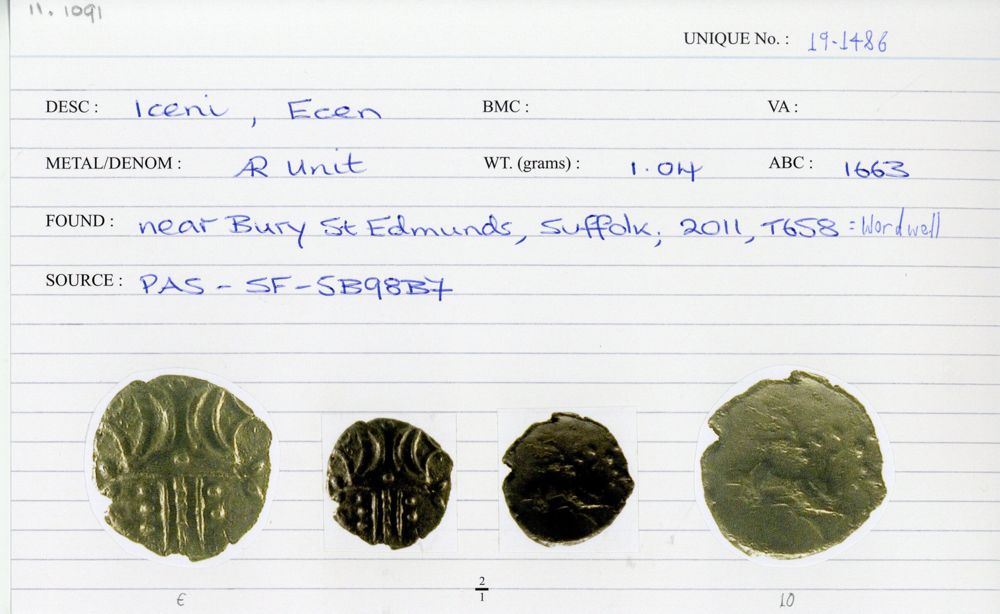 11.1091
UNIQUE No. : 19-1486
DESC : Iceni, Ecen BMC : VA :
METAL/DENOM : AR Unit WT. (grams) : 1.04 ABC : 1663
FOUND : near Bury St Edmunds, Suffolk, 2011, T658 = Wordwell
SOURCE : PAS - SF-5B98B7
2
1
€ 10